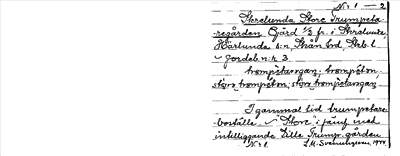 Nr 1 — 2
Skrelunda Store Trumpeta-
regården Gård 1/2 fr. i Skrelunda
Härlunda s:n, Skan hrd, Skrb. l.
Jordeb. n:r 3
trompetaregan, trompéten
störe trompéten, störe trompetaregan
I gammal tid trumpetare
boställe. "Store" i jämf. med
intilliggande Lille Trump. gården
Nr 1. S.M. 1944